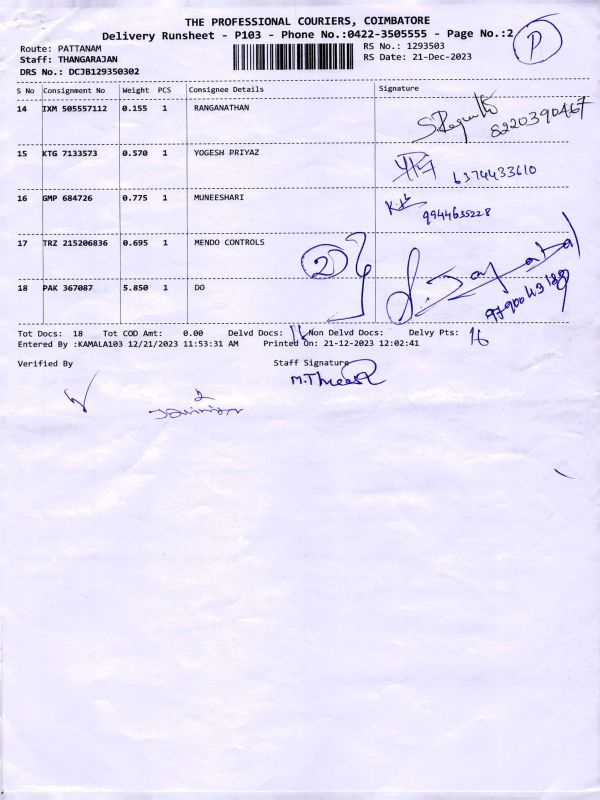 THE PROFESSIONAL COURIERS, COIMBATORE
Delivery Runsheet - P103 - Phone No.:0422-3505555 - Page No.:2
P
Route: PATTANAM
RS No.: 1293503
Staff: THANGARAJAN
RS Date: 21-Dec-2023
DRS No.: DCJB129350302
S No Consignment No Weight PCS Consignee Details Signature
14 IXM 505557112 0.155 1 RANGANATHAN
8220390467
15 KTG 7133573 0.570 1 YOGESH PRIYAZ
6374433610
16 GMP 684726 0.775 1 MUNEESHARI
9944635228
17 TRZ 215206836 0.695 1 MENDO CONTROLS
2
18 PAK 367087 5.850 1 DO
Tot Docs: 18 Tot COD Amt: 0.00 Delvd Docs: Non Delvd Docs: Delvy Pts: 16
Entered By :KAMALA103 12/21/2023 11:53:31 AM Printed On: 21-12-2023 12:02:41
Verified By Staff Signature